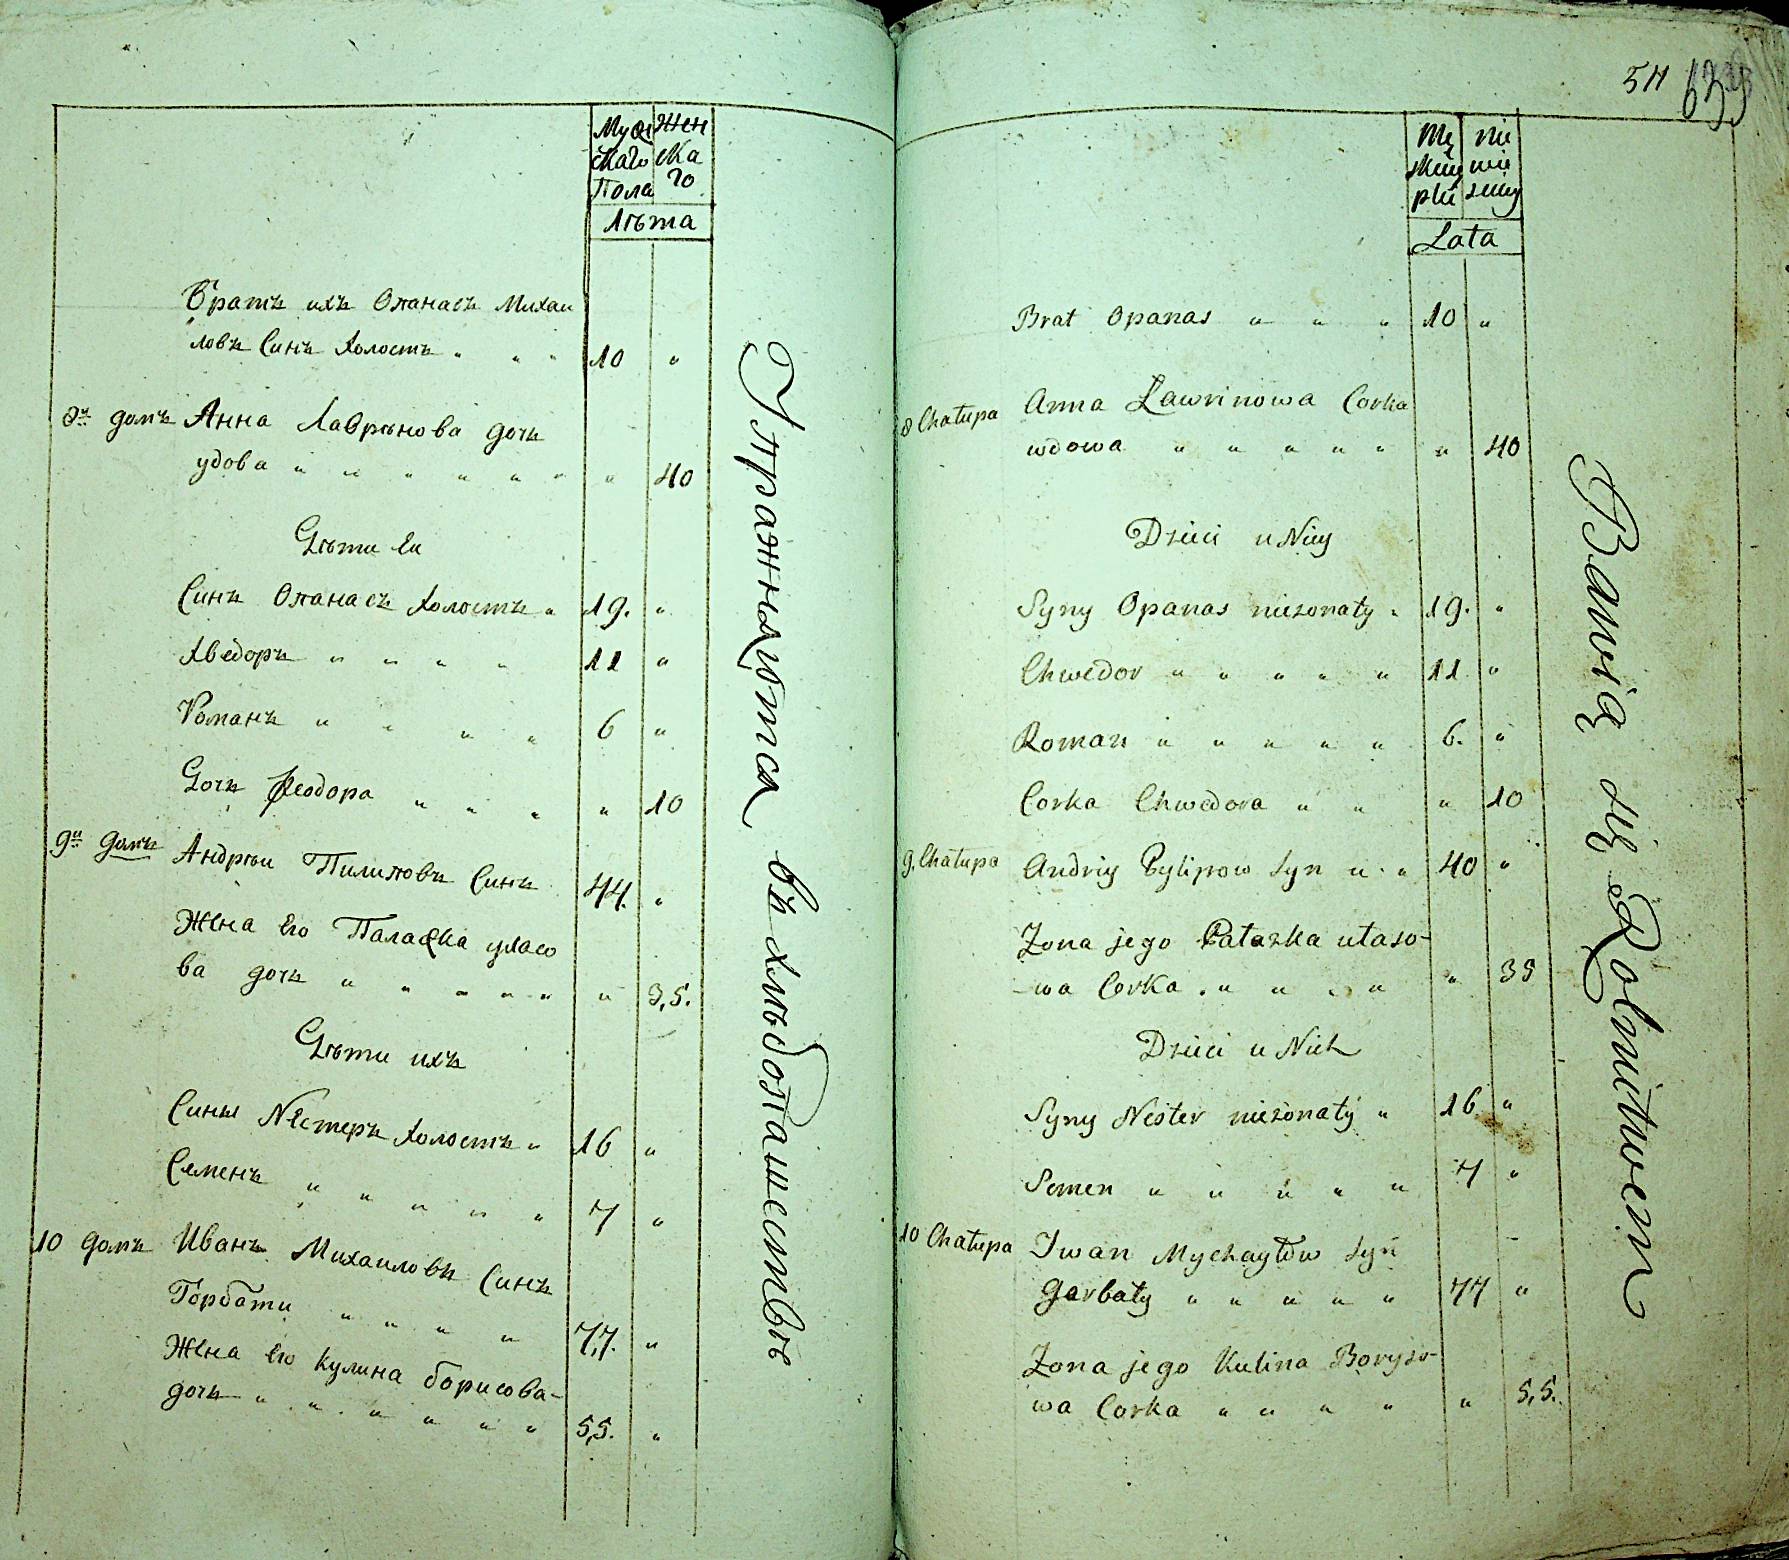 Муже Жен
скаго ска
Пола го
Лѣта
Братъ ихъ Опанасъ Михаи
ловъ Синъ Холостъ " " " 10 "
8й домъ Анна Лаврѣнова дочь
удова " " " " " " " 40
Дѣти Еи
Синъ Опанасъ Холостъ " 19. "
Хведоръ " " " " 11 "
Романъ " " " " 6 "
Дочь Феодора " " " " 10
9й домъ Андрѣи Пилиповъ Синъ 44. "
Жена Его Палажка уласо
ва дочь " " " " " " 3,5.
Дѣти ихъ
Сины Нестеръ Холостъ " 16 "
Семенъ " " " " " 7 "
10 домъ Иванъ Михаиловъ Синъ
Горбати " " " " 7,7. "
Жена Его Кулина борисова-
дочь " " " " " " 5,5. "
Упражняются въ хлѣбопашествѣ
511 639
Mę nie
skiey wie
płci sciey
Lata
Brat Opanas " " " 10 "
8 Chałupa Anna Ławrinowa Corka
wdowa " " " " " " 40
Dzieci u Niey
Syny Opanas nieżonaty " 19. "
Chwedor " " " " " 11. "
Roman " " " " " 6. "
Corka Chwedora " " " 10
9. Chałupa Andriy Pylipow Syn " " 40 "
Zona jego Pałazka ułaso-
-wa Corka . " " " " " 35
Dzieci u Nich
Syny Nester nieżonaty " 16 "
Semen " " " " " 7 "
10 Chałupa Iwan Mychayłow Syn
Garbaty " " " " " 77 "
Zona jego Kulina Boryso-
wa Corka " " " " " 5,5.
Bawią się Rolnictwem